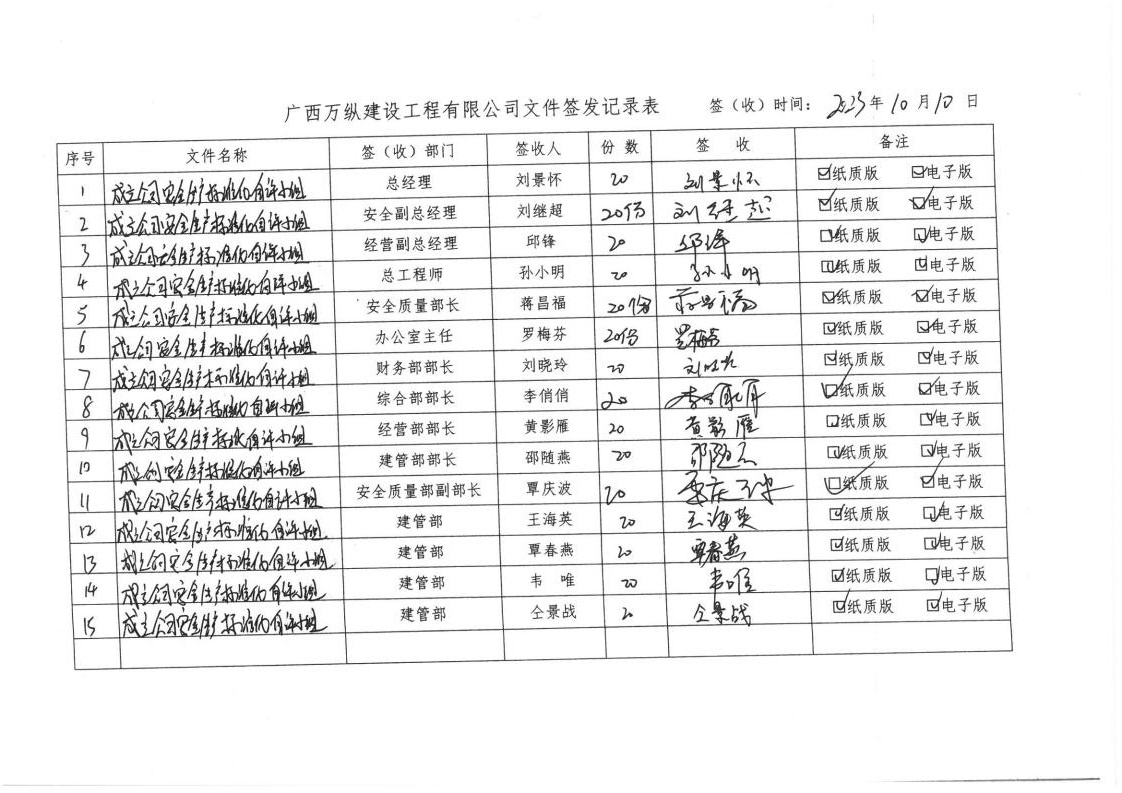 广西万纵建设工程有限公司文件签发记录表 签（收）时间： 2023年10月10日
序号 文件名称 签（收）部门 签收人 份数 签 收 备注
1 成立公司安全生产标准化自评小组 总经理 刘景怀 20 刘景怀 ☑纸质版 ☑电子版
2 成立公司安全生产标准化自评小组 安全副总经理 刘继超 20份 刘继超 ☑纸质版 ☑电子版
3 成立公司安全生产标准化自评小组 经营副总经理 邱锋 20 邱锋 ☑纸质版 ☑电子版
4 成立公司安全生产标准化自评小组 总工程师 孙小明 20 孙小明 ☑纸质版 ☑电子版
5 成立公司安全生产标准化自评小组 安全质量部长 蒋昌福 20份 蒋昌福 ☑纸质版 ☑电子版
6 成立公司安全生产标准化自评小组 办公室主任 罗梅芬 20份 罗梅芬 ☑纸质版 ☑电子版
7 成立公司安全生产标准化自评小组 财务部部长 刘晓玲 20 刘晓玲 ☑纸质版 ☑电子版
8 成立公司安全生产标准化自评小组 综合部部长 李俏俏 20 李俏俏 ☑纸质版 ☑电子版
9 成立公司安全生产标准化自评小组 经营部部长 黄影雁 20 黄影雁 ☑纸质版 ☑电子版
10 成立公司安全生产标准化自评小组 建管部部长 邵随燕 20 邵随燕 ☑纸质版 ☑电子版
11 成立公司安全生产标准化自评小组 安全质量部副部长 覃庆波 20 覃庆波 ☑纸质版 ☑电子版
12 成立公司安全生产标准化自评小组 建管部 王海英 20 王海英 ☑纸质版 ☑电子版
13 成立公司安全生产标准化自评小组 建管部 覃春燕 20 覃春燕 ☑纸质版 ☑电子版
14 成立公司安全生产标准化自评小组 建管部 韦 唯 20 韦唯 ☑纸质版 ☑电子版
15 成立公司安全生产标准化自评小组 建管部 仝景战 20 仝景战 ☑纸质版 ☑电子版